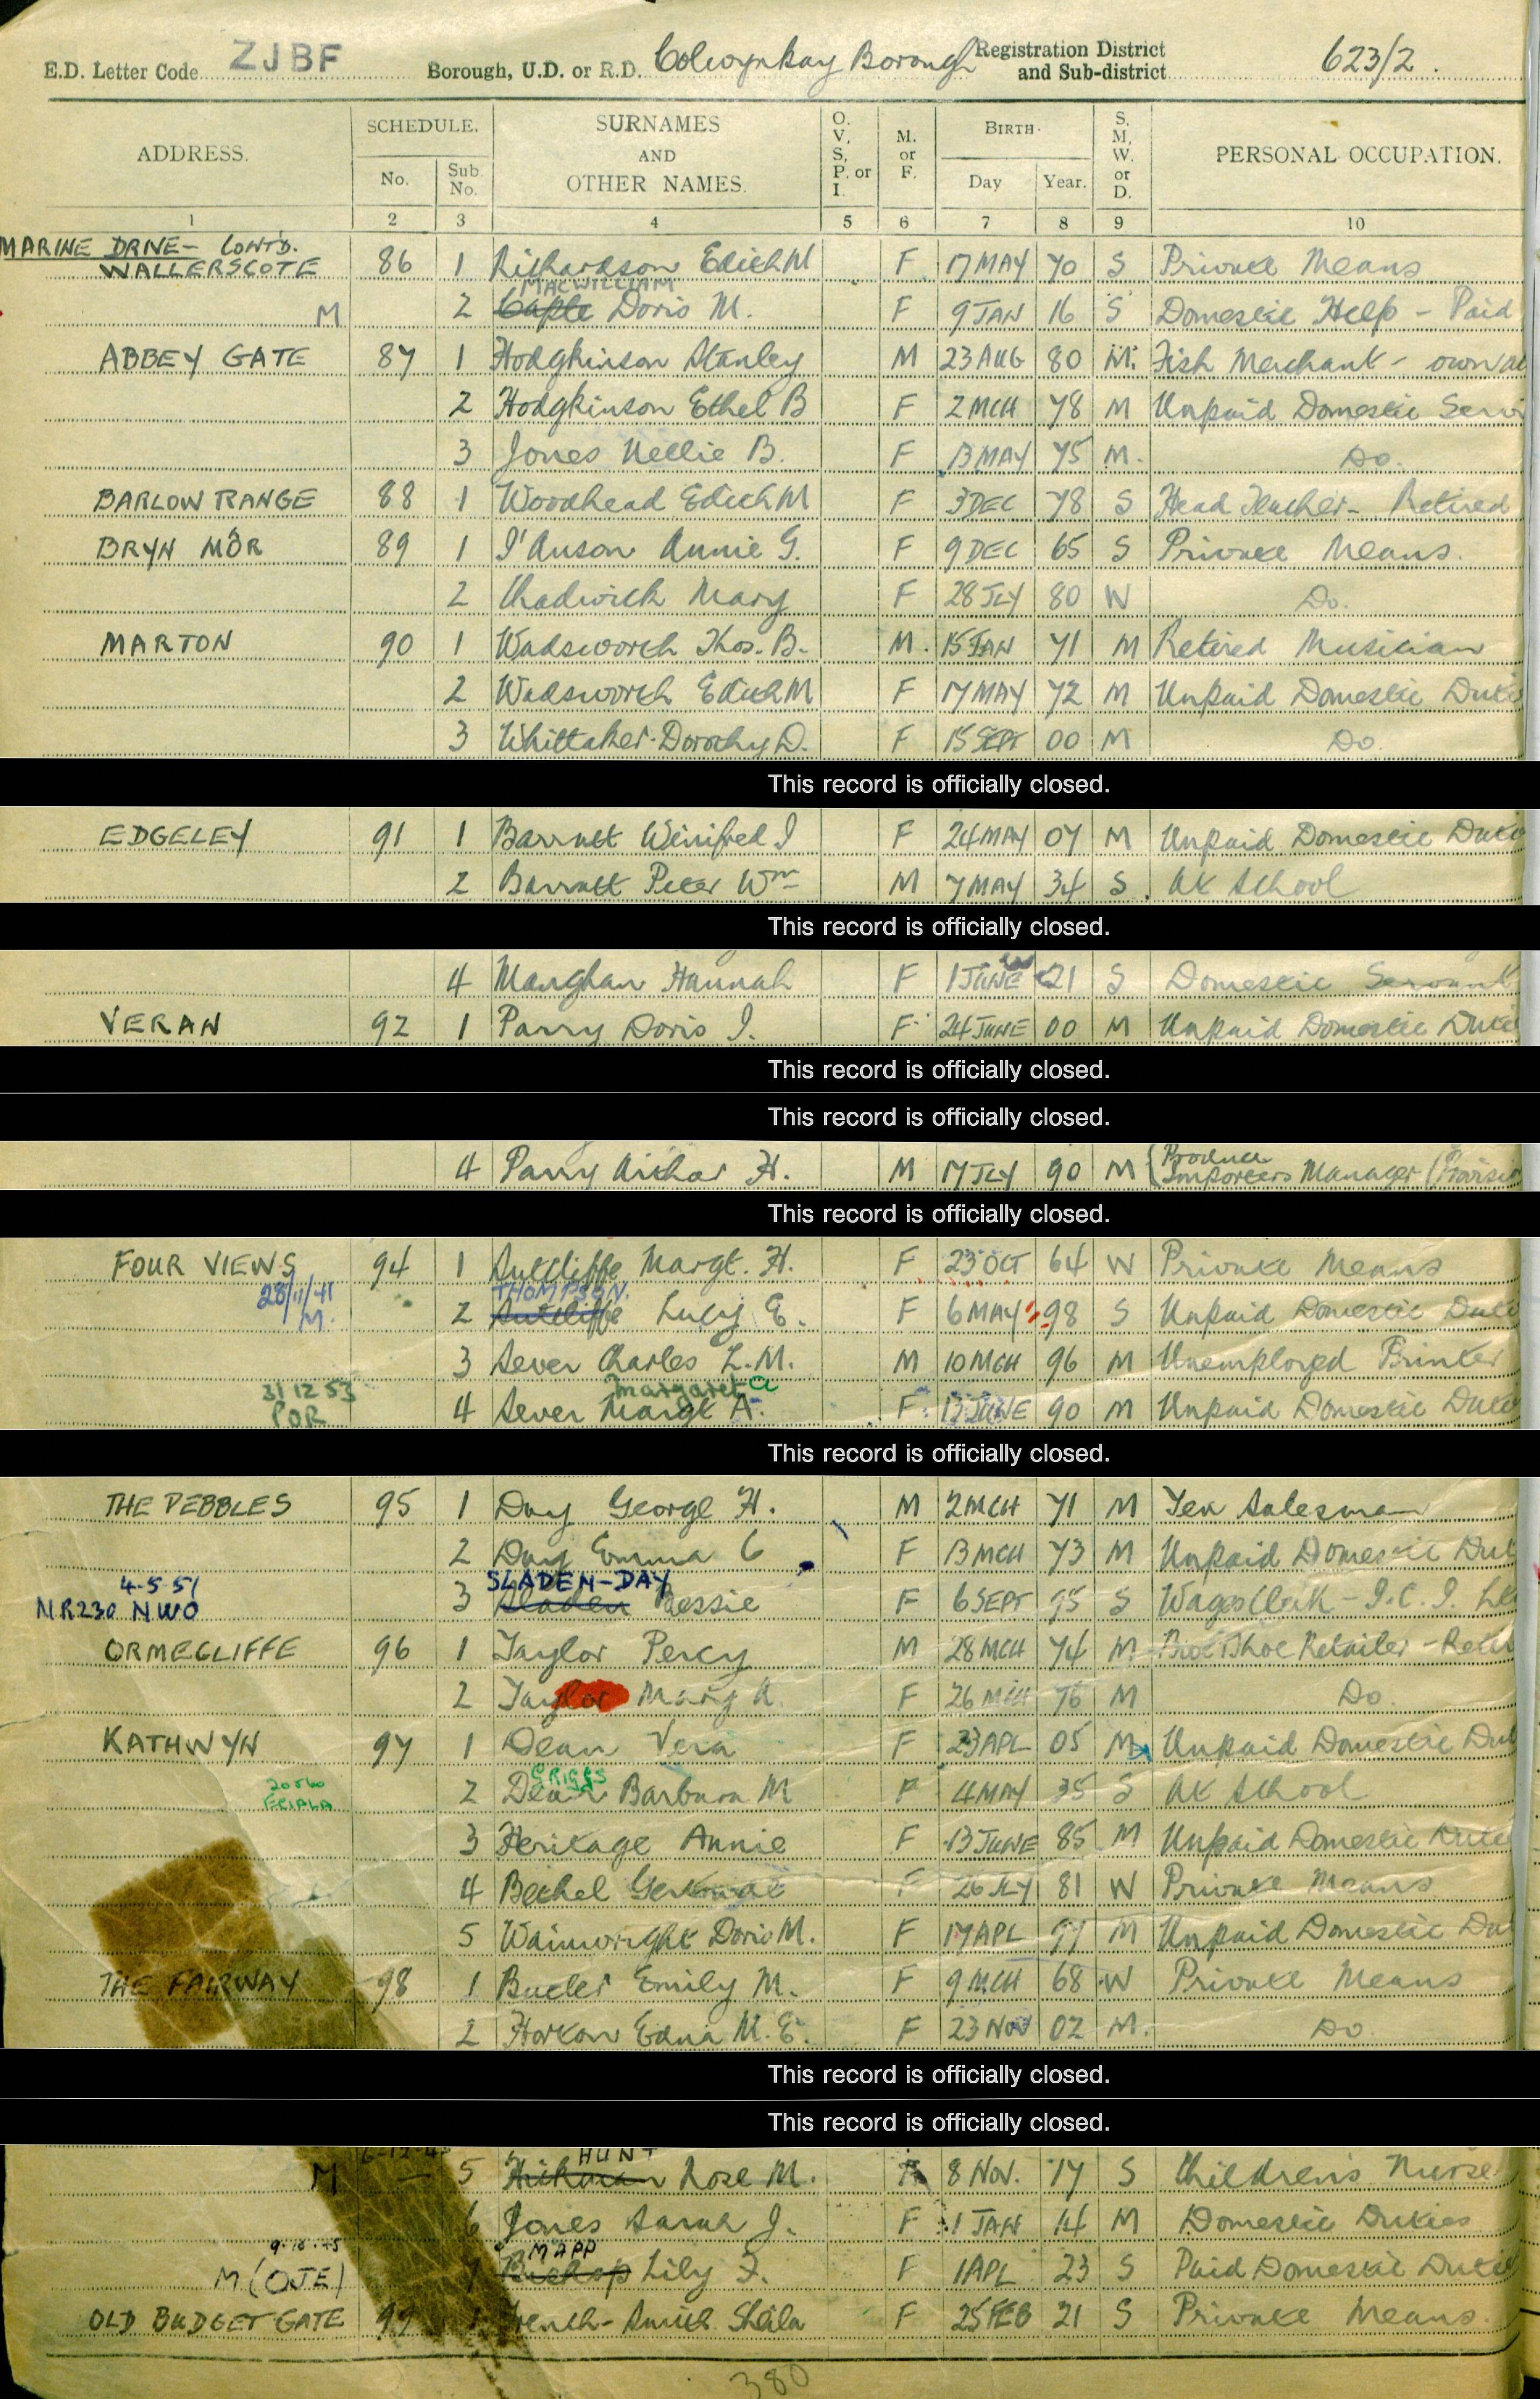 E.D. Letter Code ZJBF Borough, U.D. or R.D. Colwyn Bay Borough Registration District and Sub-district 623/2.
ADDRESS. SCHEDULE. No. Sub No. SURNAMES AND OTHER NAMES. O. V, S, P. or I. M. or F. BIRTH Day Year. S. M, W. or D. PERSONAL OCCUPATION.
1 2 3 4 5 6 7 8 9 10
MARINE DRIVE – CONTD.
WALLERSCOTE 86 1 Richardson Edith M F 17 MAY 70 S Private Means
MACWILLIAM
M 2 Capte Doris M. F 9 JAN 16 S Domestic Help – Paid
ABBEY GATE 87 1 Hodgkinson Stanley M 23 AUG 80 M. Fish Merchant – own
2 Hodgkinson Ethel B F 2 MCH 78 M Unpaid Domestic
3 Jones Nellie B. F 13 MAY 75 M. Do.
BARLOW RANGE 88 1 Woodhead Edith M F 3 DEC 78 S Head Teacher – Retired
BRYN MÔR 89 1 I'Anson Annie G. F 9 DEC 65 S Private Means.
2 Chadwick Mary F 28 JLY 80 W Do.
MARTON 90 1 Wadsworth Thos. B. M. 15 JAN 71 M Retired Musician
2 Wadsworth Edith M F 17 MAY 72 M Unpaid Domestic
3 Whittaker Dorothy D. F 15 SEPT 00 M Do.
This record is officially closed.
EDGELEY 91 1 Barratt Winifred I F 24 MAY 07 M Unpaid Domestic
2 Barratt Peter Wm M 7 MAY 34 S. At School
This record is officially closed.
4 Maughan Hannah F 1 JUNE 21 S Domestic Servant
VERAN 92 1 Parry Doris I. F 24 JUNE 00 M Unpaid Domestic
This record is officially closed.
This record is officially closed.
4 Parry Arthur H. M 17 JLY 90 M { Produce Importers Manager
This record is officially closed.
FOUR VIEWS 94 1 Sutcliffe Margt. H. F 23 OCT 64 W Private Means
28/11/41 THOMPSON.
M. 2 Sutcliffe Lucy E. F 6 MAY 98 S Unpaid Domestic
3 Sever Charles L.M. M 10 MCH 96 M Unemployed Printer
31 12 53 Margaret a
POR 4 Sever Margt A. F. 13 JUNE 90 M Unpaid Domestic
This record is officially closed.
THE PEBBLES 95 1 Day George H. M 2 MCH 71 M Tea Salesman
2 Day Emma C F 13 MCH 73 M Unpaid Domestic
4.5.51 SLADEN-DAY
NR230 NWO 3 Sladen Bessie F 6 SEPT 95 S Wages Clerk – I.C.I.
ORMECLIFFE 96 1 Taylor Percy M 28 MCH 74 M Shoe Retailer –
2 Taylor Mary A. F 26 MCH 76 M Do.
KATHWYN 97 1 Dean Vera F 23 APL 05 M Unpaid Domestic
GRIGGS
2 Dean Barbara M F 4 MAY 35 S At School
3 Heritage Annie F 13 JUNE 85 M Unpaid Domestic
4 Bethel F 26 JLY 81 W Private Means
5 Wainwright Doris M. F 17 APL 97 M Unpaid Domestic
THE FAIRWAY 98 1 Butler Emily M. F 9 MCH 68 W Private Means
2 Horton Edna M.E. F 23 NOV 02 M. Do.
This record is officially closed.
This record is officially closed.
HUNT
M 5 Hickman Rose M. 8 NOV. 17 S Children's Nurse
6 Jones Sarah J. F 1 JAN 14 M Domestic Duties
MAPP
M (OJE) 7 Bishop Lily F. F 1 APL 23 S Paid Domestic
OLD BUDGET GATE 99 1 French-Smith Sheila F 25 FEB 21 S Private Means.
380